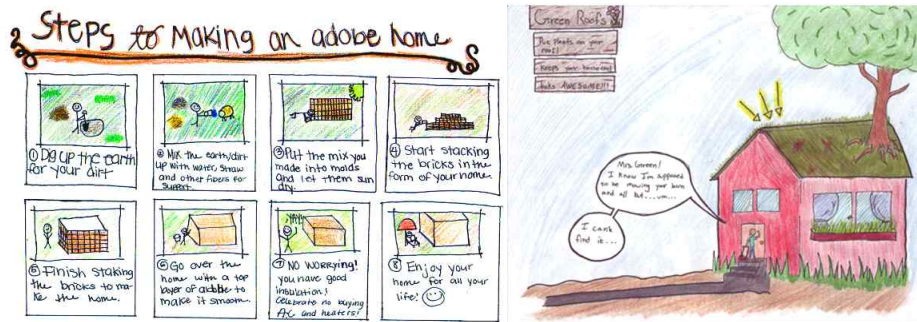 Steps to Making an adobe home
① Dig up the earth
for your dirt
② Mix the earth/dirt
up with water, straw
and other fibers for
support.
③ Put the mix you
made into molds
and let them sun
dry.
④ Start stacking
the bricks in the
form of your home.
⑤ Finish staking
the bricks to ma-
ke the home.
⑥ Go over the
home with a top
layer of adobe to
make it smooth.
YAY!
⑦ NO WORRYING!
you have good
insulation!
Celebrate no buying
AC and heaters!
⑧ Enjoy your
home for all your
life!
Green Roofs
Put Plants on your
roof!
Keeps your house cool
Looks AWESOME!!!
Mrs. Green!
I know I'm supposed
to be mowing your lawn
and all but...um...
I can't
find it...